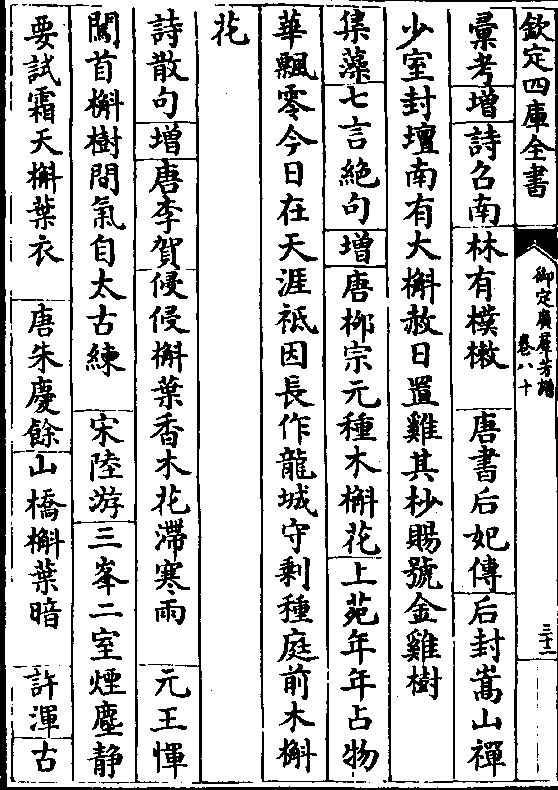 欽定四庫全書
御定廣羣芳譜
卷八十
三十二
彙考增詩召南林有樸樕 唐書后妃傳后封嵩山禪
少室封壇南有大槲赦日置雞其杪賜號金雞樹
集藻七言絶句增唐柳宗元種木槲花上苑年年占物
華飄零今日在天涯祗因長作龍城守剩種庭前木槲
花
詩散句增唐李賀侵侵槲葉香木花滯寒雨 元王惲
闖首槲樹間氣自太古練 宋陸游三峯二室煙塵静
要試霜天槲葉衣 唐朱慶餘山橋槲葉暗 許渾古